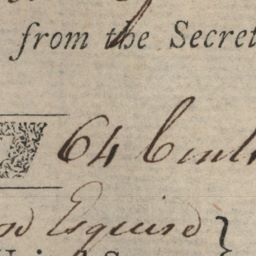 from the Secret
64 Cents
Esquire